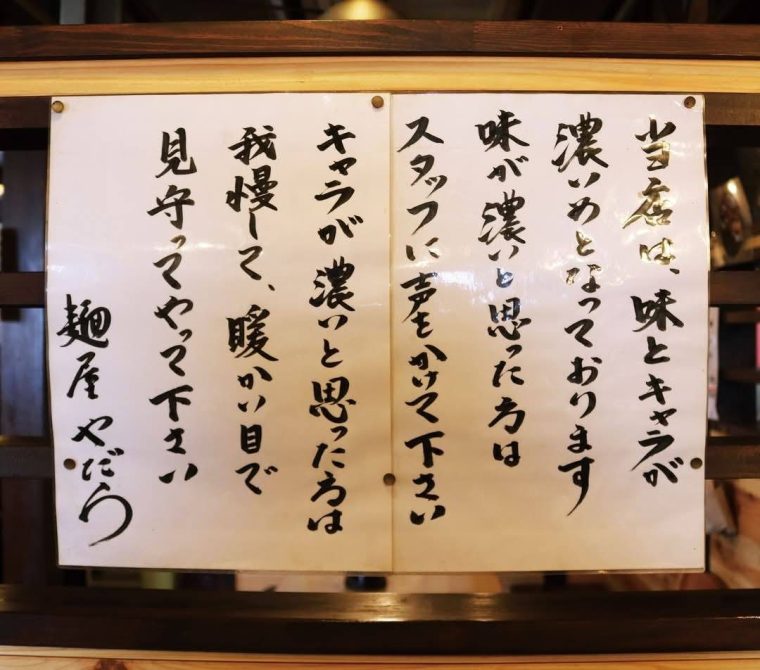 当店は、味とキャラが
濃いめとなっております
味が濃いと思った方は
スタッフに声をかけて下さい
キャラが濃いと思った方は
我慢して、暖かい目で
見守ってやって下さい
麺屋 やだら